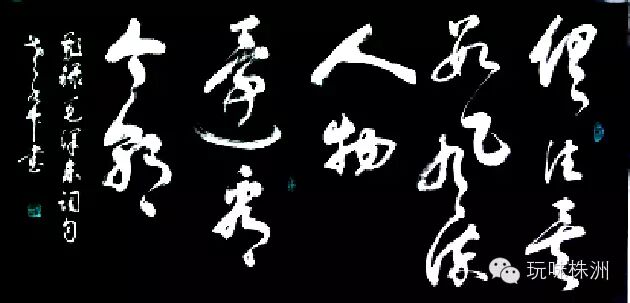 俱往矣
数风流
人物
還看
今朝
録毛泽东词句
书
玩味株洲